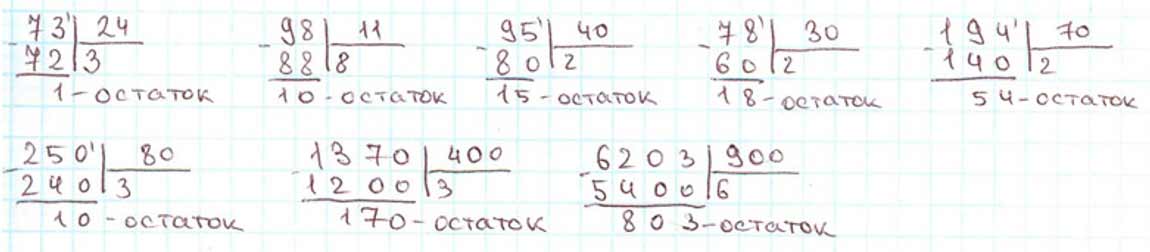 73 24 98 11 95 40 78 30 194 70
- 72 3 - 88 8 - 80 2 - 60 2 - 140 2
1 - остаток 10 - остаток 15 - остаток 18 - остаток 54 - остаток
250 80 1370 400 6203 900
- 240 3 - 1200 3 - 5400 6
10 - остаток 170 - остаток 803 - остаток